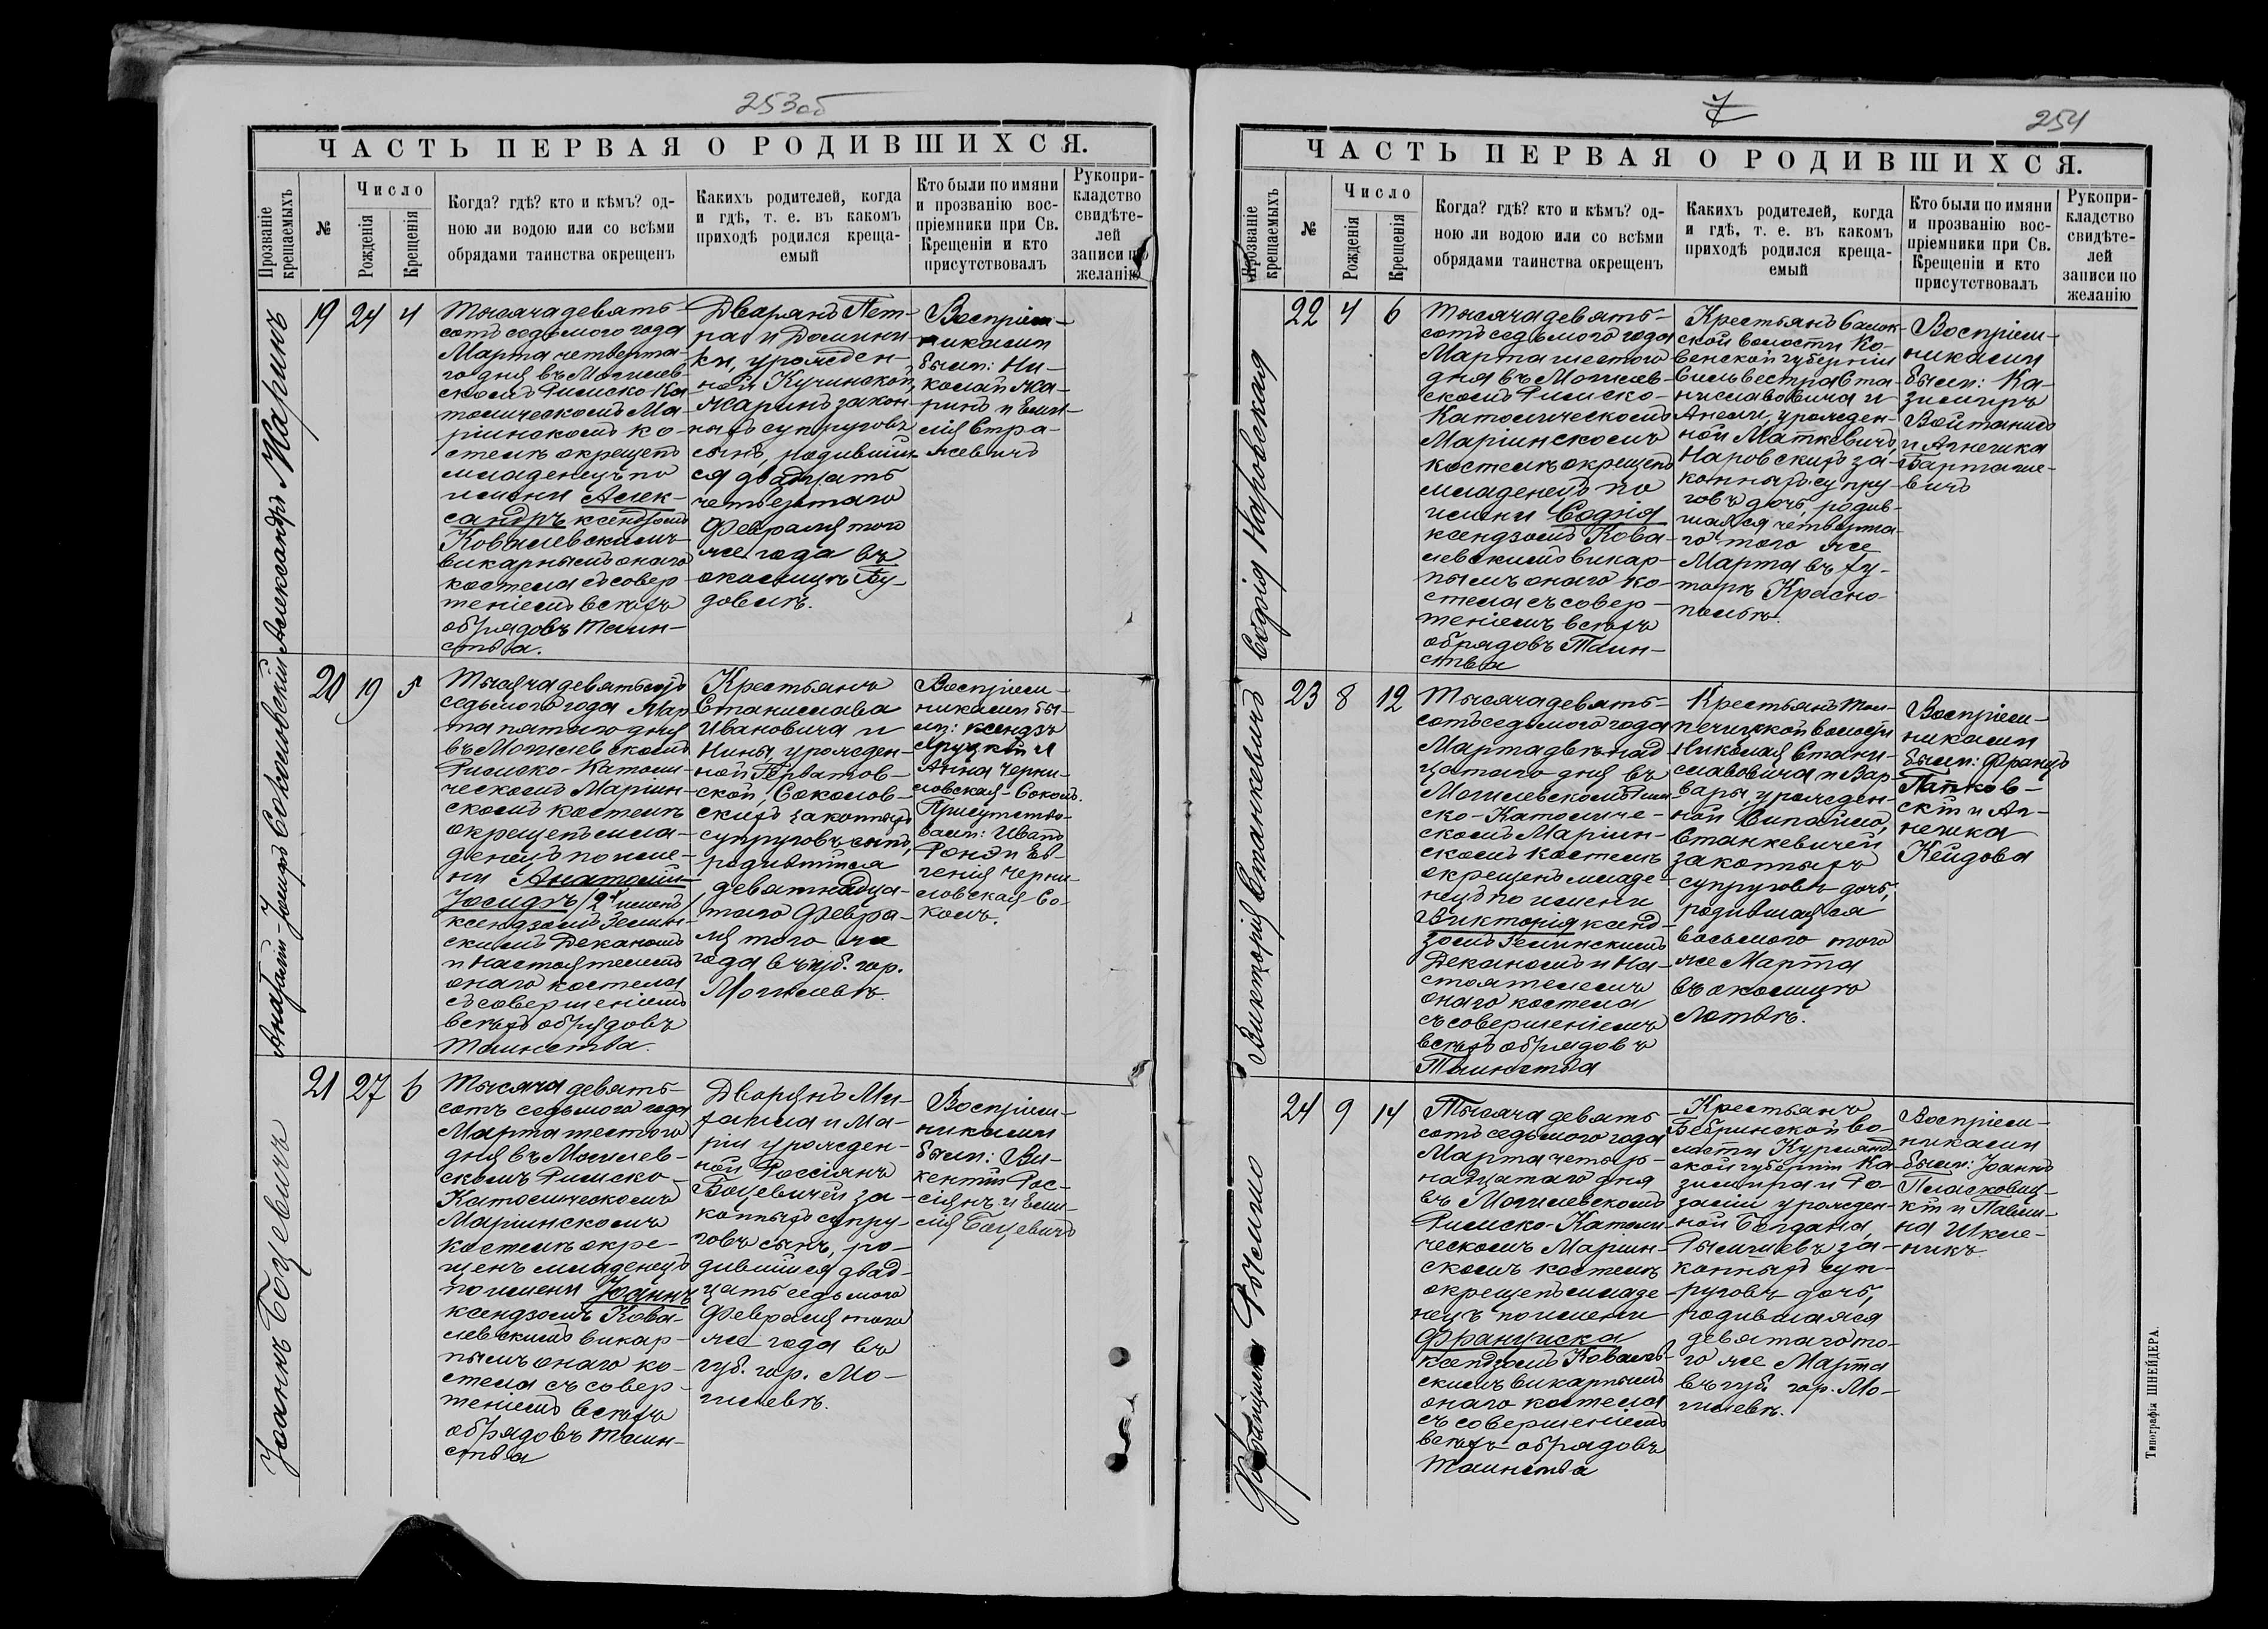 253об
ЧАСТЬ ПЕРВАЯ О РОДИВШИХСЯ.
Прозваніе крещаемыхъ
№
Число
Рожденія
Крещенія
Когда? гдѣ? кто и кѣмъ? од-
ною ли водою или со всѣми
обрядами таинства окрещенъ
Какихъ родителей, когда
и гдѣ, т. е. въ какомъ
приходѣ родился креща-
емый
Кто были по имяни
и прозванію вос-
пріемники при Св.
Крещеніи и кто
присутствовалъ
Рукопри-
кладство
свидѣте-
лей
записи по
желанію
Александръ Жаринъ
19
24
4
Тысяча девять-
сотъ седьмого года
Марта четверта-
го дня въ Могилев-
скомъ Римско-Ка
толическомъ Ма-
ріинскомъ ко-
стелѣ окрещенъ
младенецъ по
имени Алек-
сандръ ксендзомъ
Ковалевскимъ
викарнымъ онаго
костела съ совер-
шеніемъ всѣхъ
обрядовъ Таин-
ства.
Дворянъ Пет-
ра и Домини-
ки, урожден-
ной Кучинской,
Жаринъ закон-
ныхъ супруговъ
сынъ, родивший-
ся двадцать
четвертаго
Февраля того
же года въ
околицѣ Бу-
довлѣ.
Воспріем-
никами
были: Ни-
колай Жа-
ринъ и Еми-
лія Стра-
жевичъ
Анатолій-Іосифъ Соколовскій
20
19
5
Тысяча девятьсотъ
седьмого года Мар
та пятаго дня
въ Могилевскомъ
Римско-Католи-
ческомъ Маріин-
скомъ костелѣ
окрещенъ мла-
денецъ по име-
ни Анатолій-
Іосифъ /2 именъ/
ксендзомъ Зелин-
скимъ Деканомъ
и Настоятелемъ
онаго костела
съ совершеніемъ
всѣхъ обрядовъ
Таинства.
Крестьянъ
Станислава
Ивановича и
Нины, урожден-
ной Герватов-
ской, Соколов-
скихъ законныхъ
супруговъ сынъ,
родившійся
девятнадца-
таго Февра-
ля того же
года въ губ. гор.
Могилевѣ.
Воспріем-
никами бы-
ли: ксендзъ
и
Анна Черни-
ловская-Соколъ.
Присутство-
вали: Иванъ
и Ев-
генія Черни-
ловская-Со-
колъ.
Іоаннъ Боцевичъ
21
27
6
Тысяча девять-
сотъ седьмого года
Марта шестого
дня въ Могилев-
скомъ Римско-
Католическомъ
Маріинскомъ
костелѣ окре-
щенъ младенецъ
по имени Іоаннъ
ксендзомъ Кова-
левскимъ викар-
нымъ онаго ко-
стела съ совер-
шеніемъ всѣхъ
обрядовъ Таин-
ства
Дворянъ Ми-
хаила и Ма-
ріи урожден-
ной Россіянъ
Боцевичей за-
конныхъ супру-
говъ сынъ, ро-
дившійся двад-
цать седьмого
Февраля того
же года въ
губ. гор. Мо-
гилевѣ.
Воспріем-
никами
были: Ви-
кентій Рос-
сіянъ и Еми-
лія Боцевичъ
7
254
ЧАСТЬ ПЕРВАЯ О РОДИВШИХСЯ.
Прозваніе крещаемыхъ
№
Число
Рожденія
Крещенія
Когда? гдѣ? кто и кѣмъ? од-
ною ли водою или со всѣми
обрядами таинства окрещенъ
Какихъ родителей, когда
и гдѣ, т. е. въ какомъ
приходѣ родился креща-
емый
Кто были по имяни
и прозванію вос-
пріемники при Св.
Крещеніи и кто
присутствовалъ
Рукопри-
кладство
свидѣте-
лей
записи по
желанію
Софія Наровская
22
4
6
Тысяча девять-
сотъ седьмого года
Марта шестого
дня въ Могилев-
скомъ Римско-
Католическомъ
Маріинскомъ
костелѣ окрещенъ
младенецъ по
имени Софія
ксендзомъ Кова-
левскимъ викар-
нымъ онаго ко-
стела съ совер-
шеніемъ всѣхъ
обрядовъ Таин-
ства
Крестьянъ Салок-
ской волости Ко-
венской губерніи
Сильвестра Ста-
ниславовича и
Анели, урожден-
ной Маткевичъ,
Наровскихъ за-
конныхъ супру-
говъ дочь, родив-
шаяся четверта-
го того же
Марта въ ху-
торѣ Красно-
польѣ.
Воспріем-
никами
были: Ка-
зимиръ
Войтанисъ
и Агнешка
Барташе-
вичъ
Викторія Станкевичъ
23
8
12
Тысяча девять-
сотъ седьмого года
Марта двѣнад-
цатаго дня въ
Могилевскомъ Рим-
ско-Католиче-
скомъ Маріин-
скомъ костелѣ
окрещенъ младе-
нецъ по имени
Викторія ксенд-
зомъ Зелинскимъ
Деканомъ и На-
стоятелемъ
онаго костела
съ совершеніемъ
всѣхъ обрядовъ
Таинства
Крестьянъ Тол-
печицкой волости
Николая Стани-
славовича и Вар-
вары, урожден-
ной
Станкевичей
законныхъ
супруговъ дочь,
родившаяся
восьмого того
же Марта
въ околицѣ
Лотвѣ.
Воспріем-
никами
были: Францъ
Папков-
скій и Аг-
нешка
Кейдова
Франциска Рымшо
24
9
14
Тысяча девять
сотъ седьмого года
Марта четыр-
надцатаго дня
въ Могилевскомъ
Римско-Католи-
ческомъ Маріин-
скомъ костелѣ
окрещенъ младе-
нецъ по имени
Франциска
ксендзомъ Ковалев-
скимъ викарнымъ
онаго костела
съ совершеніемъ
всѣхъ обрядовъ
Таинства
Крестьянъ
Бебринской во-
лости Курлянд-
ской губерніи Ка-
зимира и Ро-
заліи урожден-
ной Богдана,
Рымшевъ за-
конныхъ суп-
руговъ дочь,
родившаяся
девятаго то-
го же Марта
въ губ. гор. Мо-
гилевѣ.
Воспріем-
никами
были: Іоаннъ
Пласковиц-
кій и Павли-
на Икле-
никъ.
Типографія ШНЕЙДЕРА.